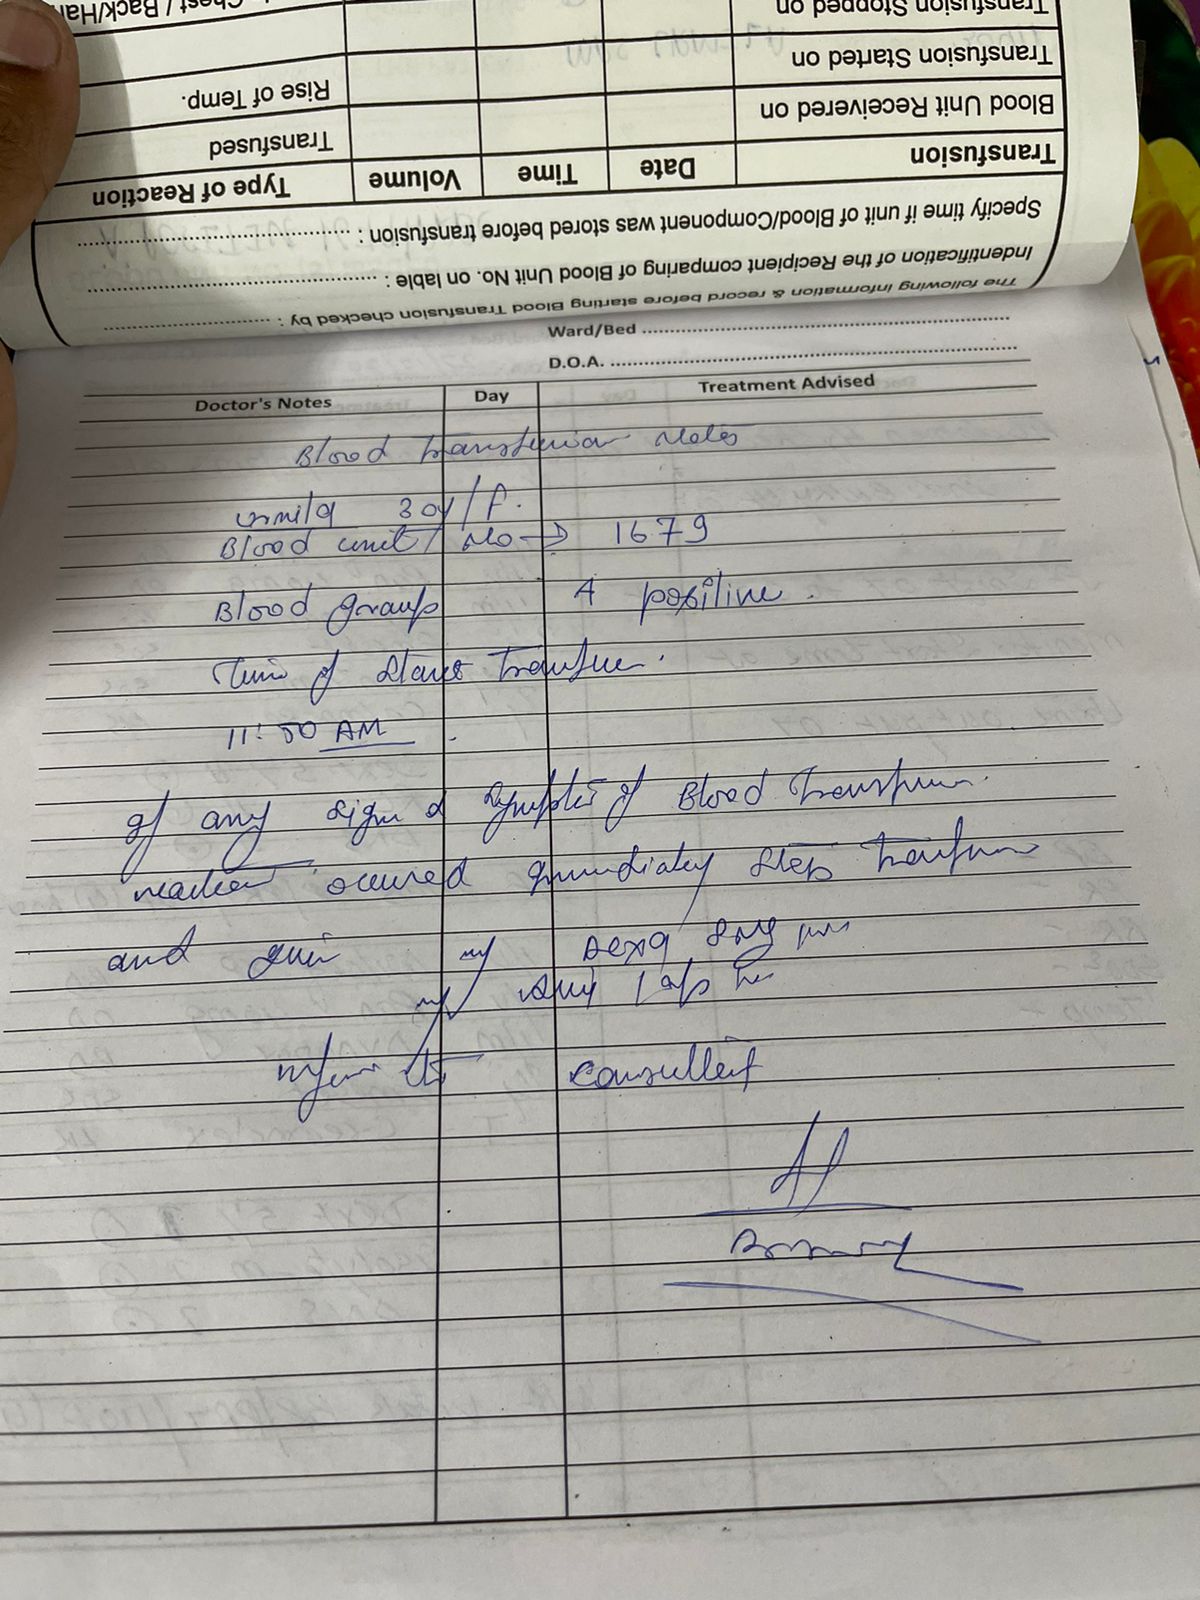 Transfusion Stopped on
Transfusion Started on
Blood Unit Receivered on
Rise of Temp.
Transfused
Transfusion Date Time Volume Type of Reaction
Specify time if unit of Blood/Component/Blood was stored before transfusion :
Indentification of the Recipient comparing of Blood Unit No. on lable :
The following information & record before starting Blood Transfusion checked by :
Ward/Bed
D.O.A.
Doctor's Notes Day Treatment Advised
Blood transfusion Notes
30y/f.
Blood unit No → 1679
Blood group A positive.
Time of Start Transfusion.
11:50 AM
If any sign & Symptoms of Blood Transfusion
reaction occured immediately stop Transfusion
and give Inj Dexa 8mg
Inj Avil 1 amp
inform to consultant